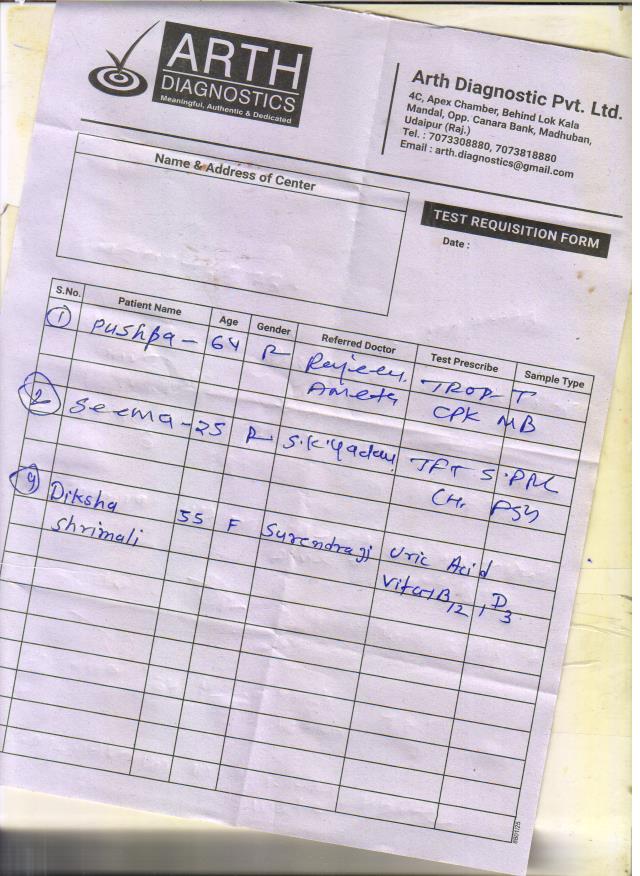 ARTH
DIAGNOSTICS
Meaningful, Authentic & Dedicated
Arth Diagnostic Pvt. Ltd.
4C, Apex Chamber, Behind Lok Kala
Mandal, Opp. Canara Bank, Madhuban,
Udaipur (Raj.)
Tel. : 7073308880, 7073818880
Email : arth.diagnostics@gmail.com
Name & Address of Center
TEST REQUISITION FORM
Date :
S.No. Patient Name Age Gender Referred Doctor Test Prescribe Sample Type
1 Pushpa - 64 F TROP-T
Ameta CPK MB
2 Seema - 25 F S.K Yadav TFT S.PRL
Diksha 55 F Surendraji Uric Acid
Shrimali VitaB12, D3